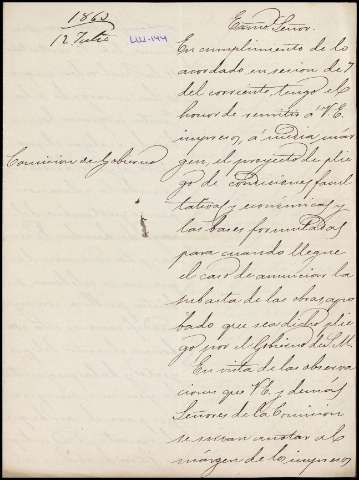 1863
12 Julio
Comision de Gobierno
Exmo Señor.
En cumplimiento de lo
acordado en sesion de 7
del corriente, tengo el
honor de remitir á V.E.
impreso, á media már-
gen, el proyecto de plie-
go de condiciones facul-
tativas y económicas y
las bases formuladas
para cuando llegue
el caso de anunciar la
subasta de las obras, apro-
bado que sea dicho plie-
go por el Gobierno de S.M.
En vista de las observa-
ciones que V.E. y demás
Señores de la Comision
se sirvan anotar al
márgen de los impresos